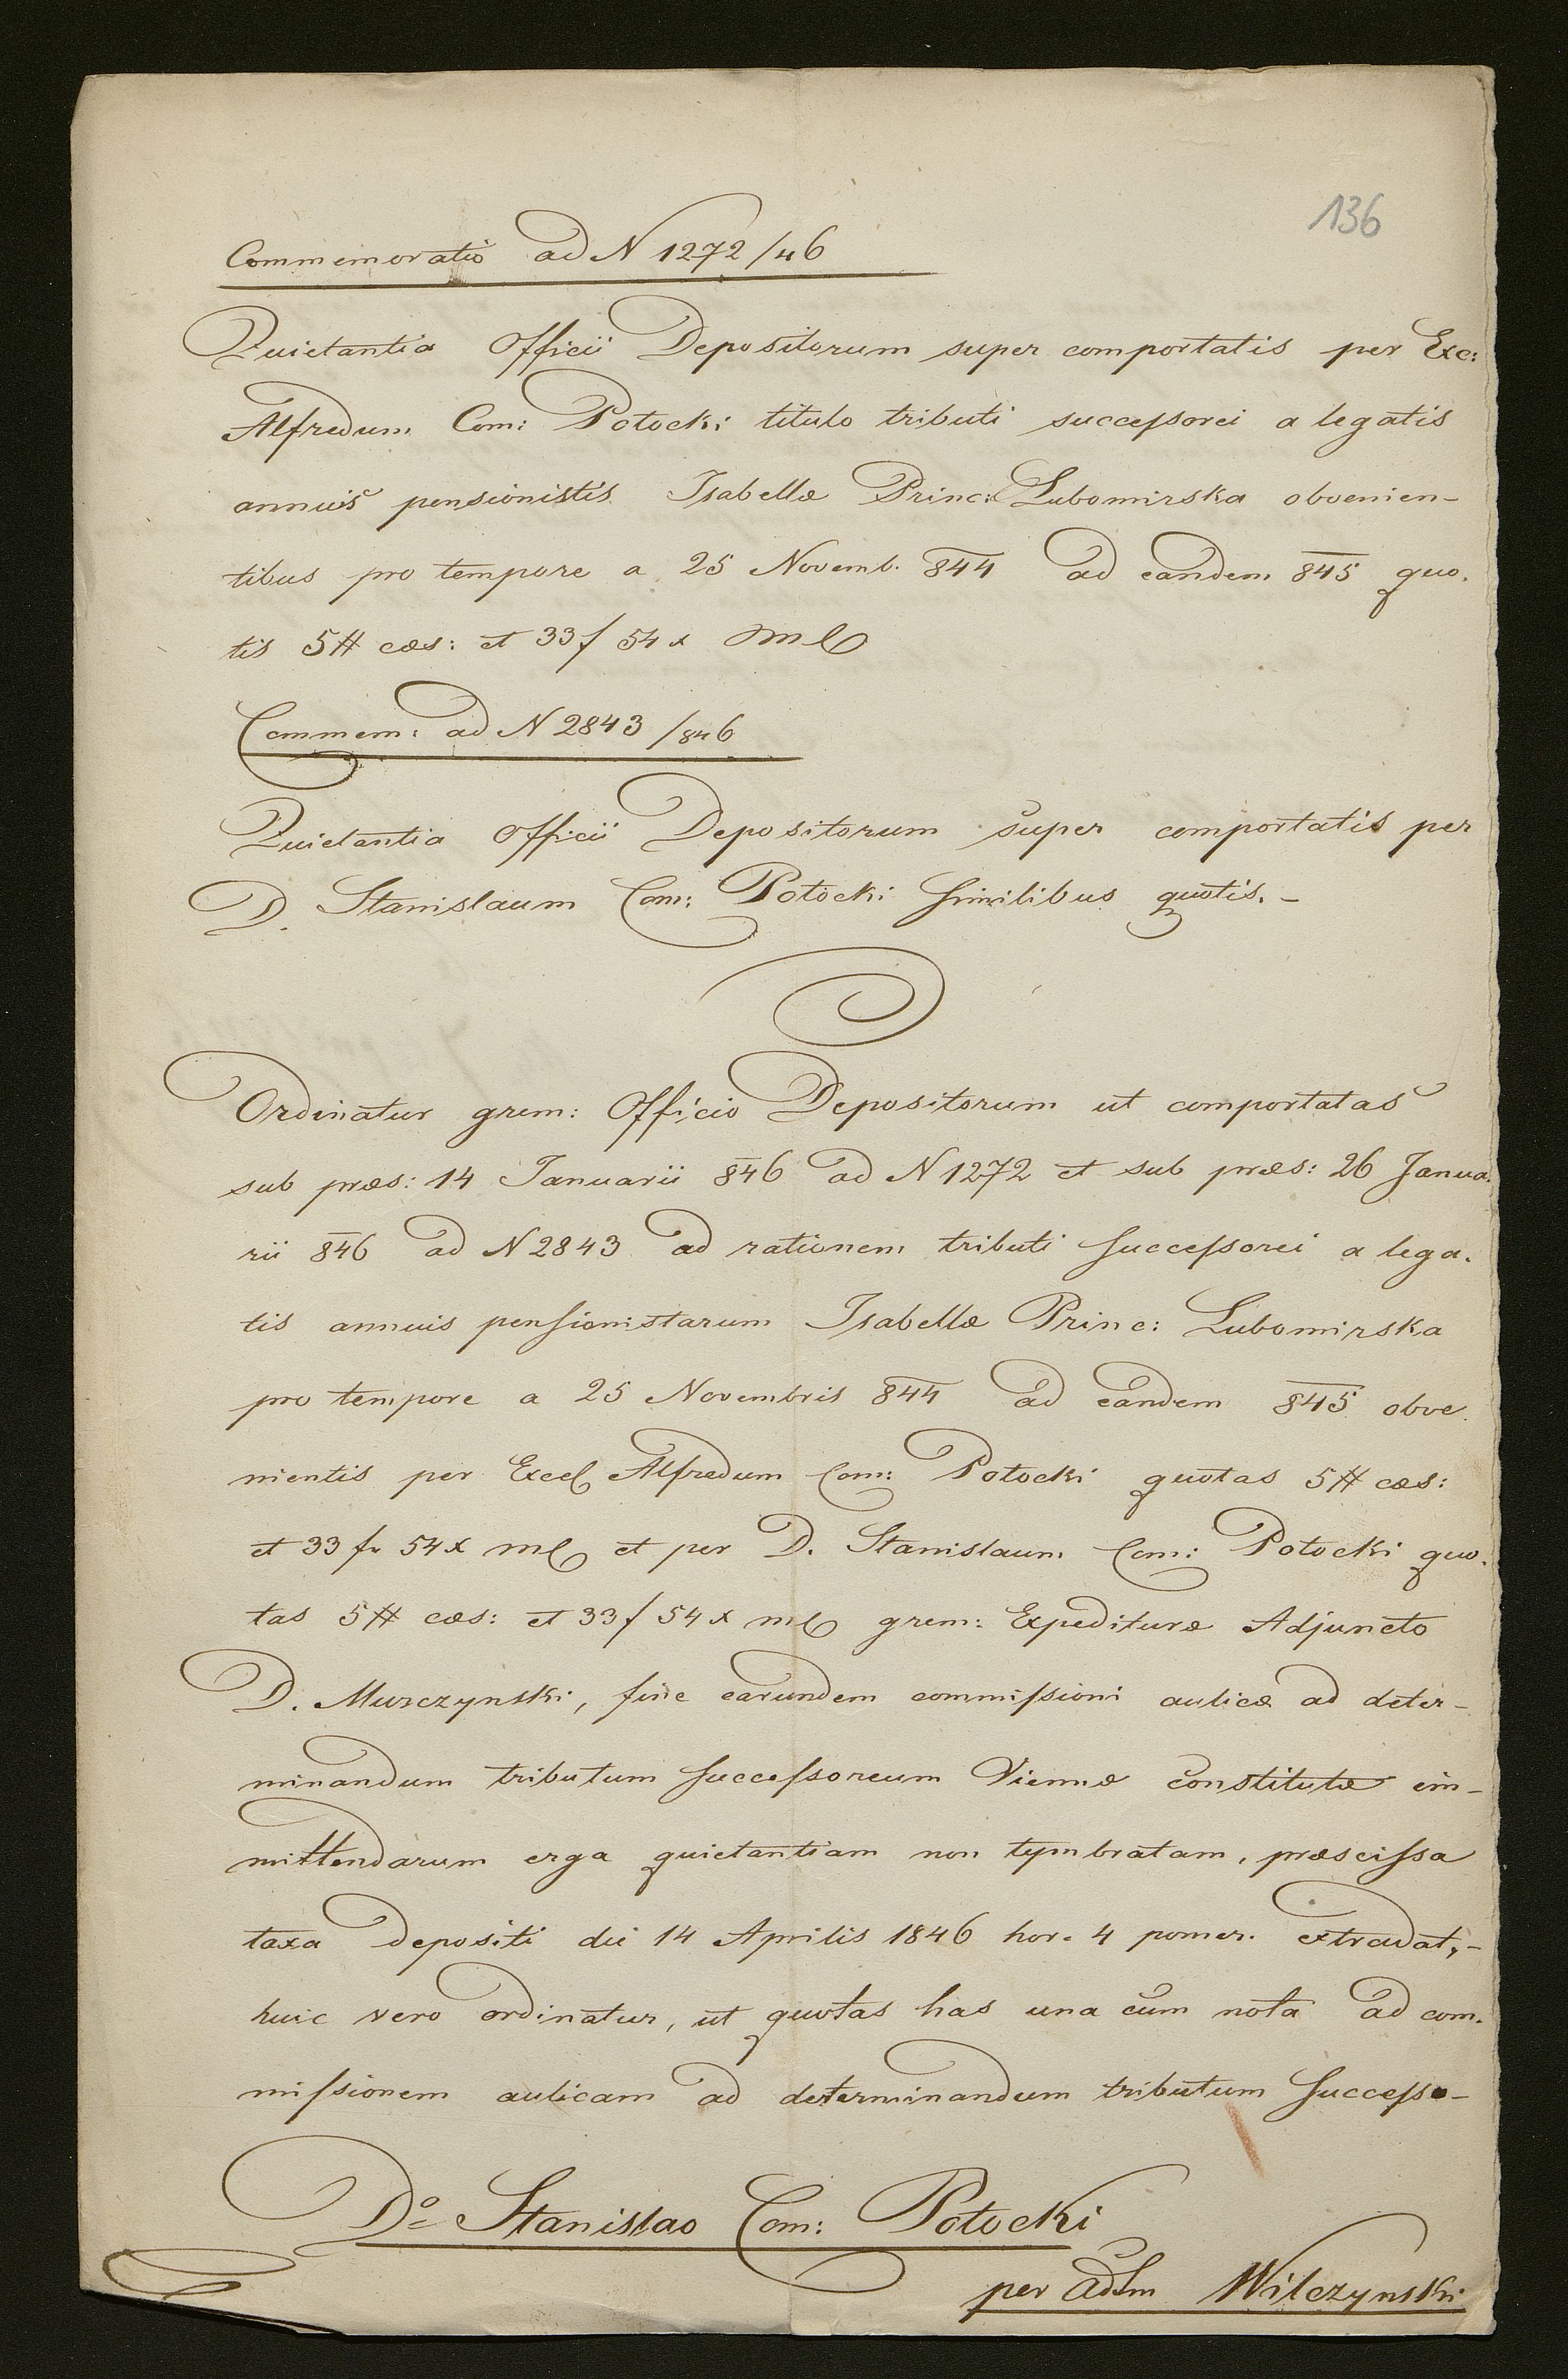 136
Commemoratio ad N 1272/46
Quietantia Officii Depositorum super comportatis per Exc:
Alfredum Com: Potocki titulo tributi successorei a legatis
annuis pensionistis Isabellæ Princ: Lubomirska obvenien-
tibus pro tempore a 25 Novemb. 844 ad eandem 845 quo.
tis 5# cæs: et 33 f 54 x
Commem: ad N 2843/846
Quietantia Officii Depositorum super comportatis per
D. Stanislaum Com: Potocki similibus quotis. -
Ordinatur grem: Officio Depositorum ut comportatas
sub præs: 14 Januarii 846 ad N 1272 et sub præs: 26 Janua.
rii 846 ad N 2843 ad rationem tributi successorei a lega.
tis annuis pensionistarum Isabellæ Princ: Lubomirska
pro tempore a 25 Novembris 844 ad eandem 845 obve.
nientis per Excel Alfredum Com: Potocki quotas 5# cæs:
et 33 fr 54 x et per D. Stanislaum Com: Potocki quo.
tas 5# cæs: et 33 f 54 x grem: Expedituræ Adjuncto
D. Murczynski, fine earundem commissioni aulicæ ad deter-
minandum tributum successoreum Viennæ constitutæ im-
mittendarum erga quietantiam non tymbratam, præscissa
taxa depositi die 14 Aprilis 1846 hor. 4 pomer. extradat, -
huic vero ordinatur, ut quotas has una cum nota ad com.
missionem aulicam ad determinandum tributum successo-
Do Stanislao Com: Potocki
per Wilczynski